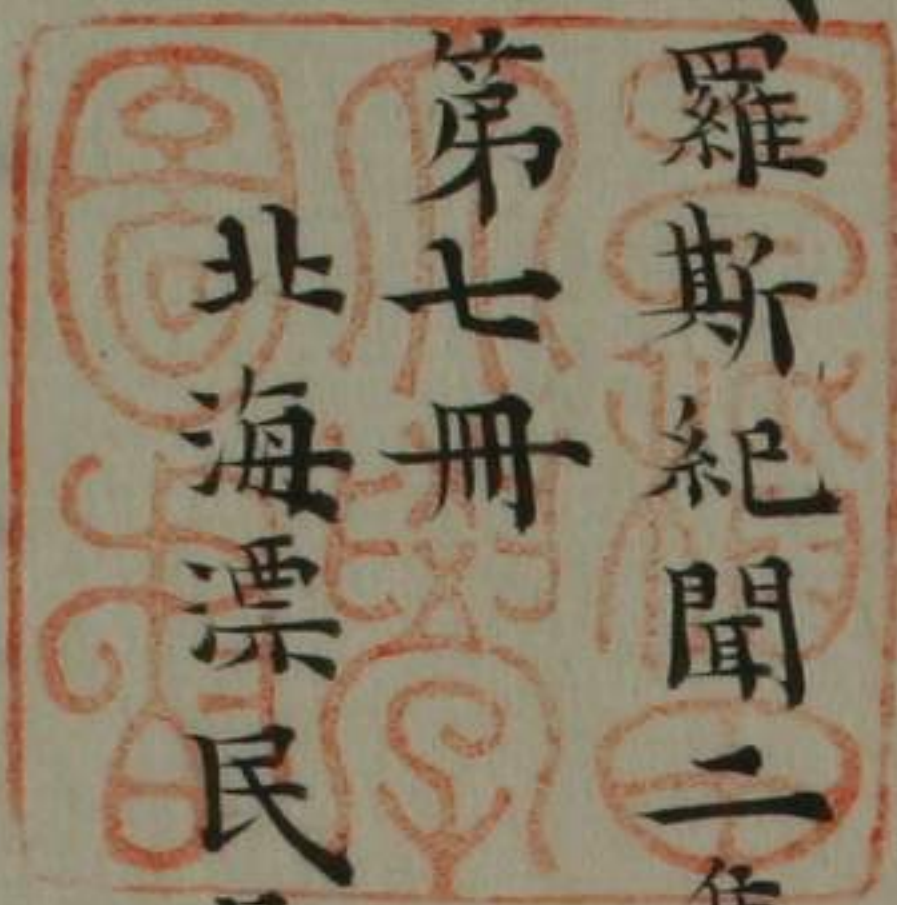 羅斯紀聞二
第七冊
北海漂民